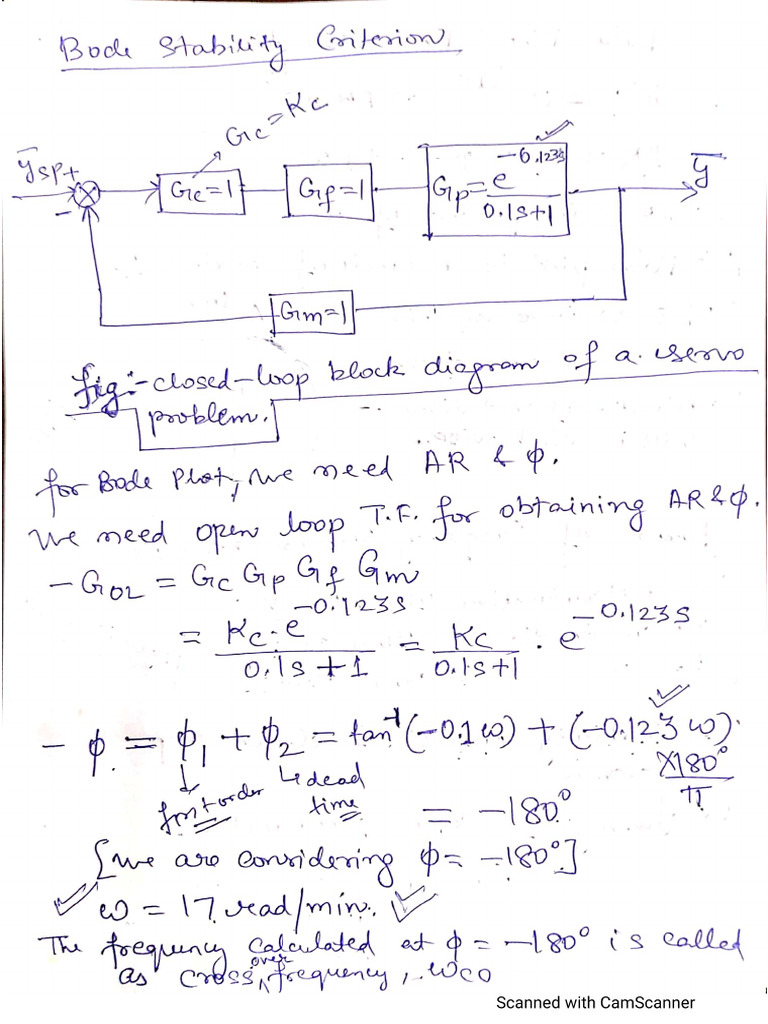 Bode Stability Criterion
Gc=Kc
ȳsp +
-
Gc=1
Gf=1
Gp= e^-0.123s / 0.1s+1
ȳ
Gm=1
fig:- closed-loop block diagram of a servo
problem.
for Bode Plot, we need AR & φ.
We need open loop T.F. for obtaining AR & φ.
- GOL = Gc Gp Gf Gm
= Kc·e^-0.123s / 0.1s+1 = Kc / 0.1s+1 · e^-0.123s
- φ = φ1 + φ2 = tan^-1(-0.1ω) + (-0.123ω).
×180° / π
↓ first order ↳ dead time
= -180°
[we are considering φ= -180°]
ω = 17 rad/min.
The frequency calculated at φ= -180° is called
as cross over frequency, ωco
Scanned with CamScanner